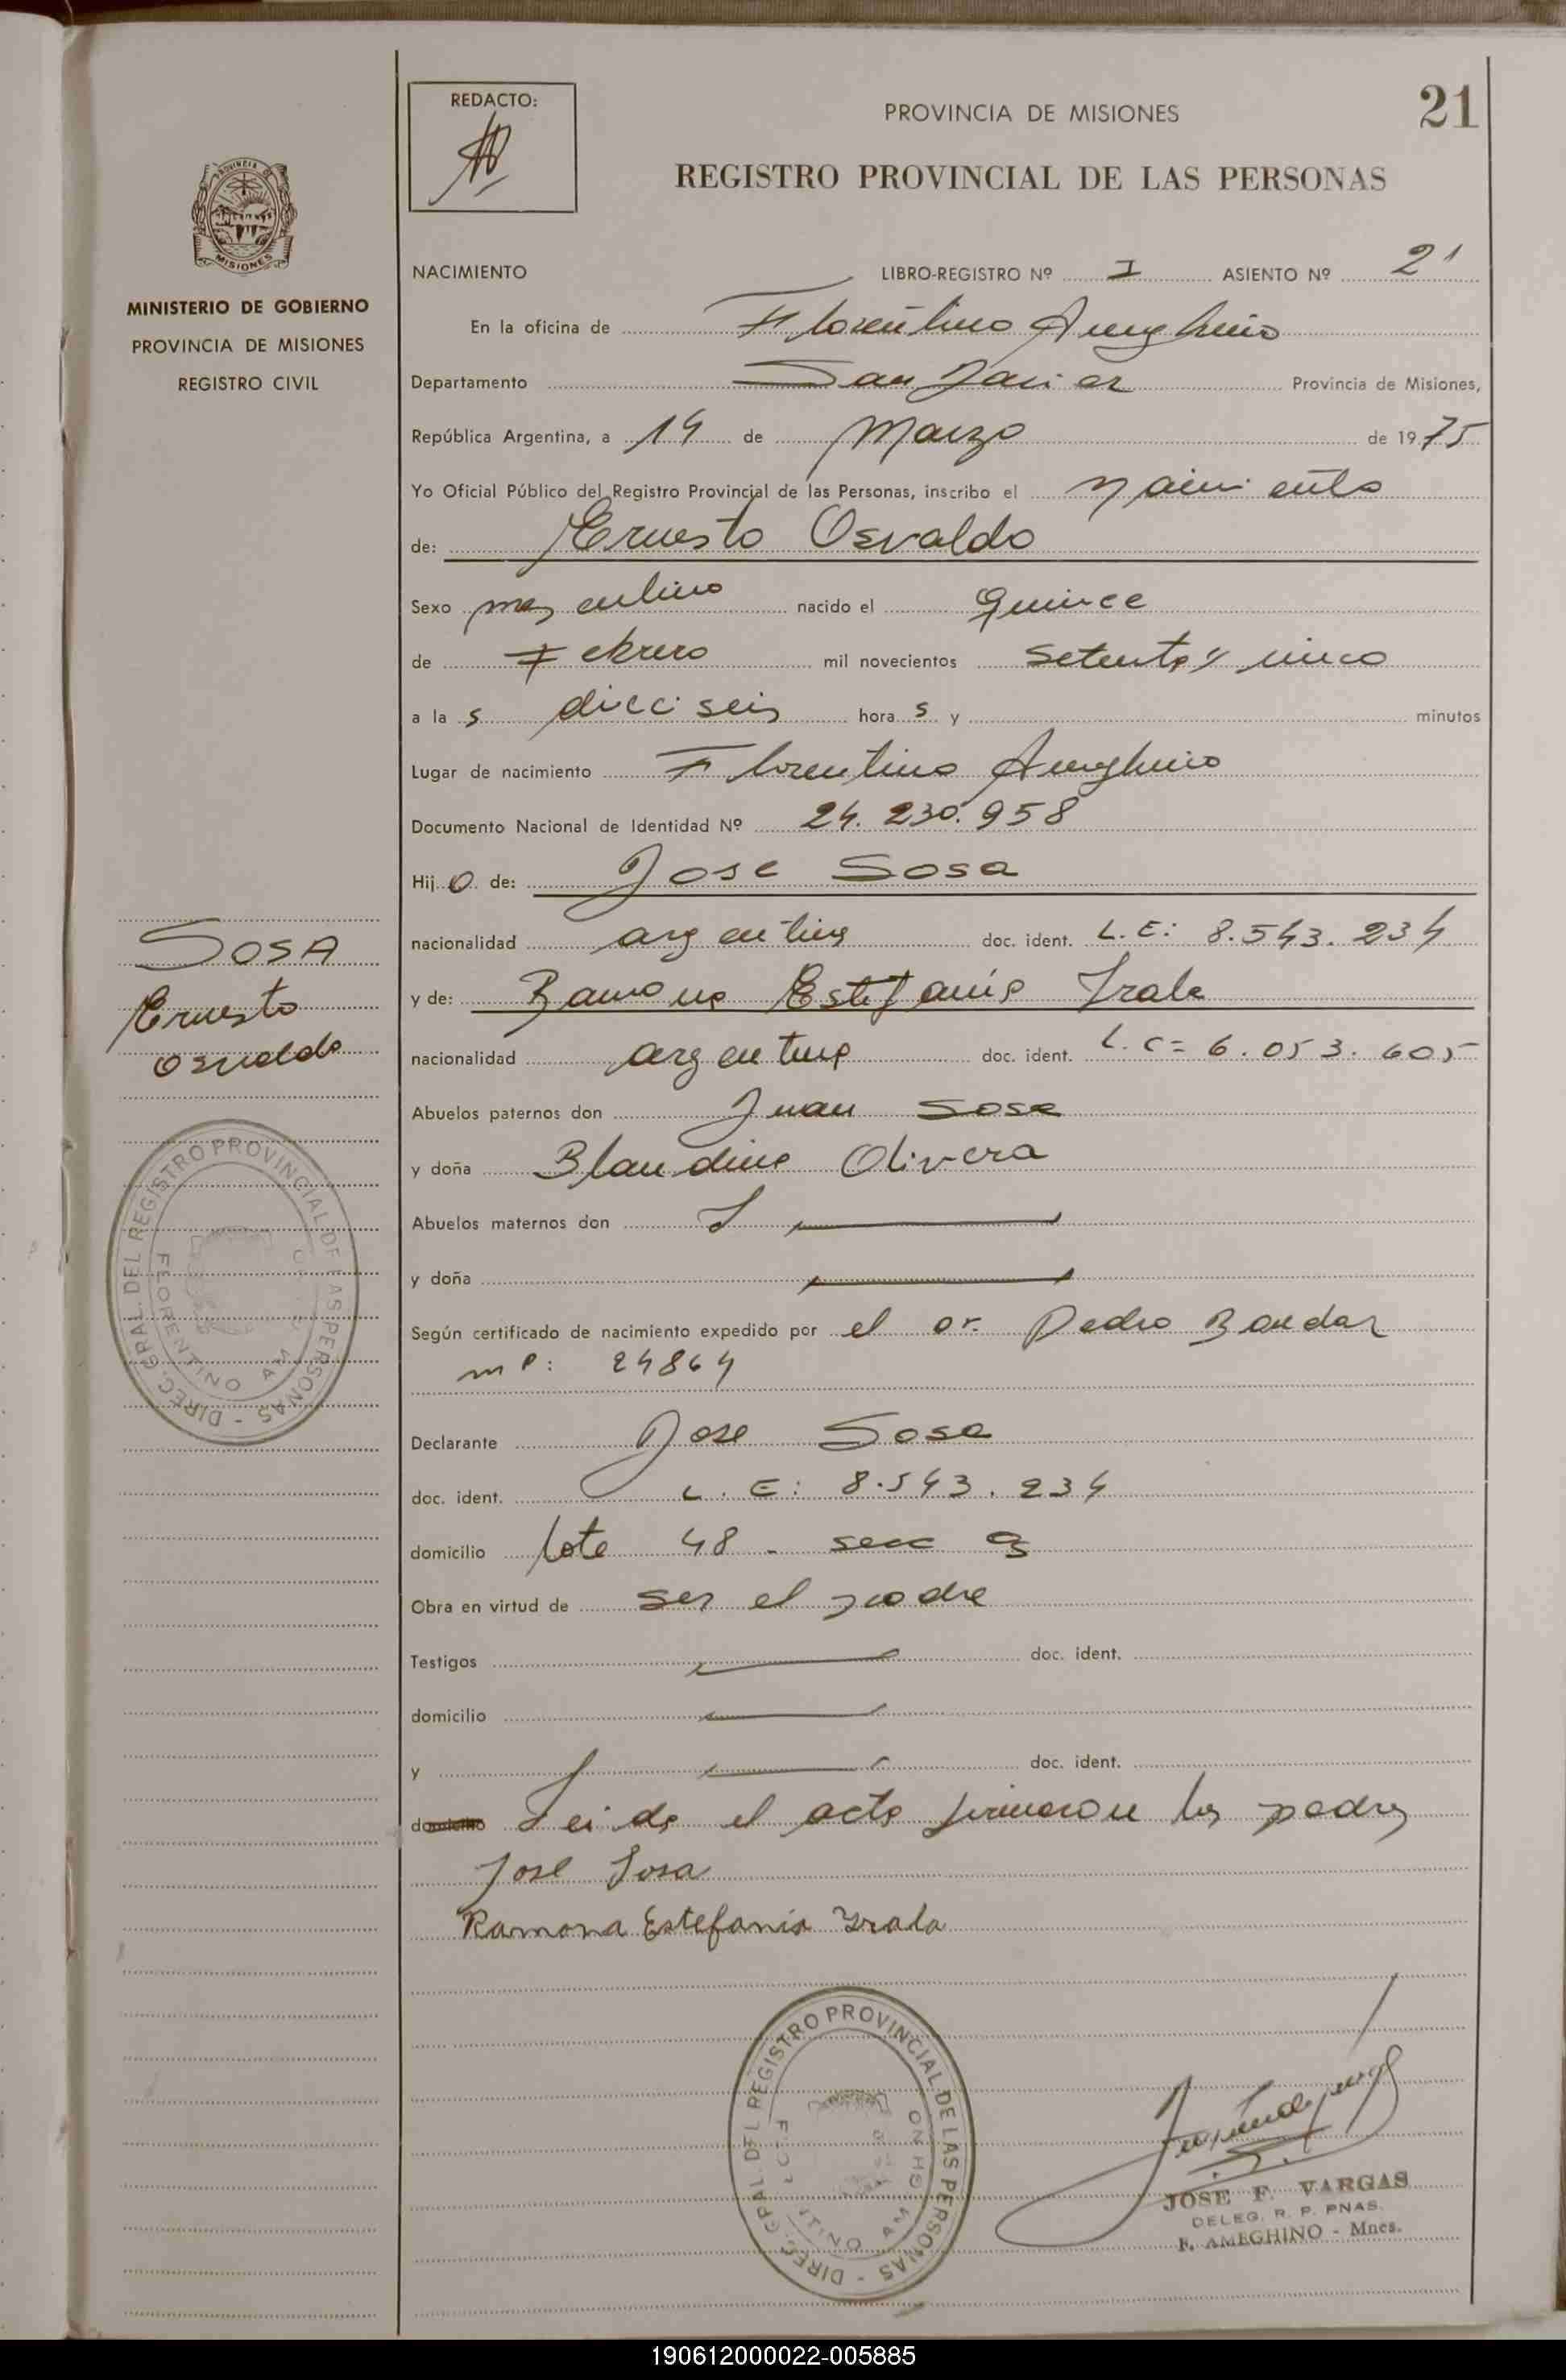 REDACTO:
PROVINCIA DE MISIONES
21
REGISTRO PROVINCIAL DE LAS PERSONAS
MISIONES
MINISTERIO DE GOBIERNO
PROVINCIA DE MISIONES
REGISTRO CIVIL
NACIMIENTO LIBRO-REGISTRO Nº I ASIENTO Nº 21
En la oficina de Florentino Ameghino
Departamento San Javier Provincia de Misiones,
República Argentina, a 14 de Marzo de 1975
Yo Oficial Público del Registro Provincial de las Personas, inscribo el nacimiento
de: Ernesto Osvaldo
Sexo masculino nacido el Quince
de Febrero mil novecientos setenta y cinco
a las dieciseis horas y minutos
Lugar de nacimiento Florentino Ameghino
Documento Nacional de Identidad Nº 24.230.958
Hijo de: Jose Sosa
nacionalidad argentina doc. ident. L.E: 8.543.234
y de: Ramona Estefanía Irala
nacionalidad argentina doc. ident. L.C= 6.053.605
Abuelos paternos don Juan Sosa
y doña Blandina Olivera
Abuelos maternos don
y doña
Según certificado de nacimiento expedido por el Dr. Pedro Bondar
mP: 24864
Declarante Jose Sosa
doc. ident. L.E: 8.543.234
domicilio lote 48 - secc 9
Obra en virtud de ser el padre
Testigos doc. ident.
domicilio
y doc. ident.
domicilio Leida el acta firmaron los padres
Jose Sosa
Ramona Estefania Yrala
SOSA
Ernesto
Osvaldo
DIREC. GRAL. DEL REGISTRO PROVINCIAL DE LAS PERSONAS
FLORENTINO AM
DIREC. GRAL. DEL REGISTRO PROVINCIAL DE LAS PERSONAS
JOSE F. VARGAS
DELEG. R. P. PNAS.
F. AMEGHINO - Mnes.
190612000022-005885